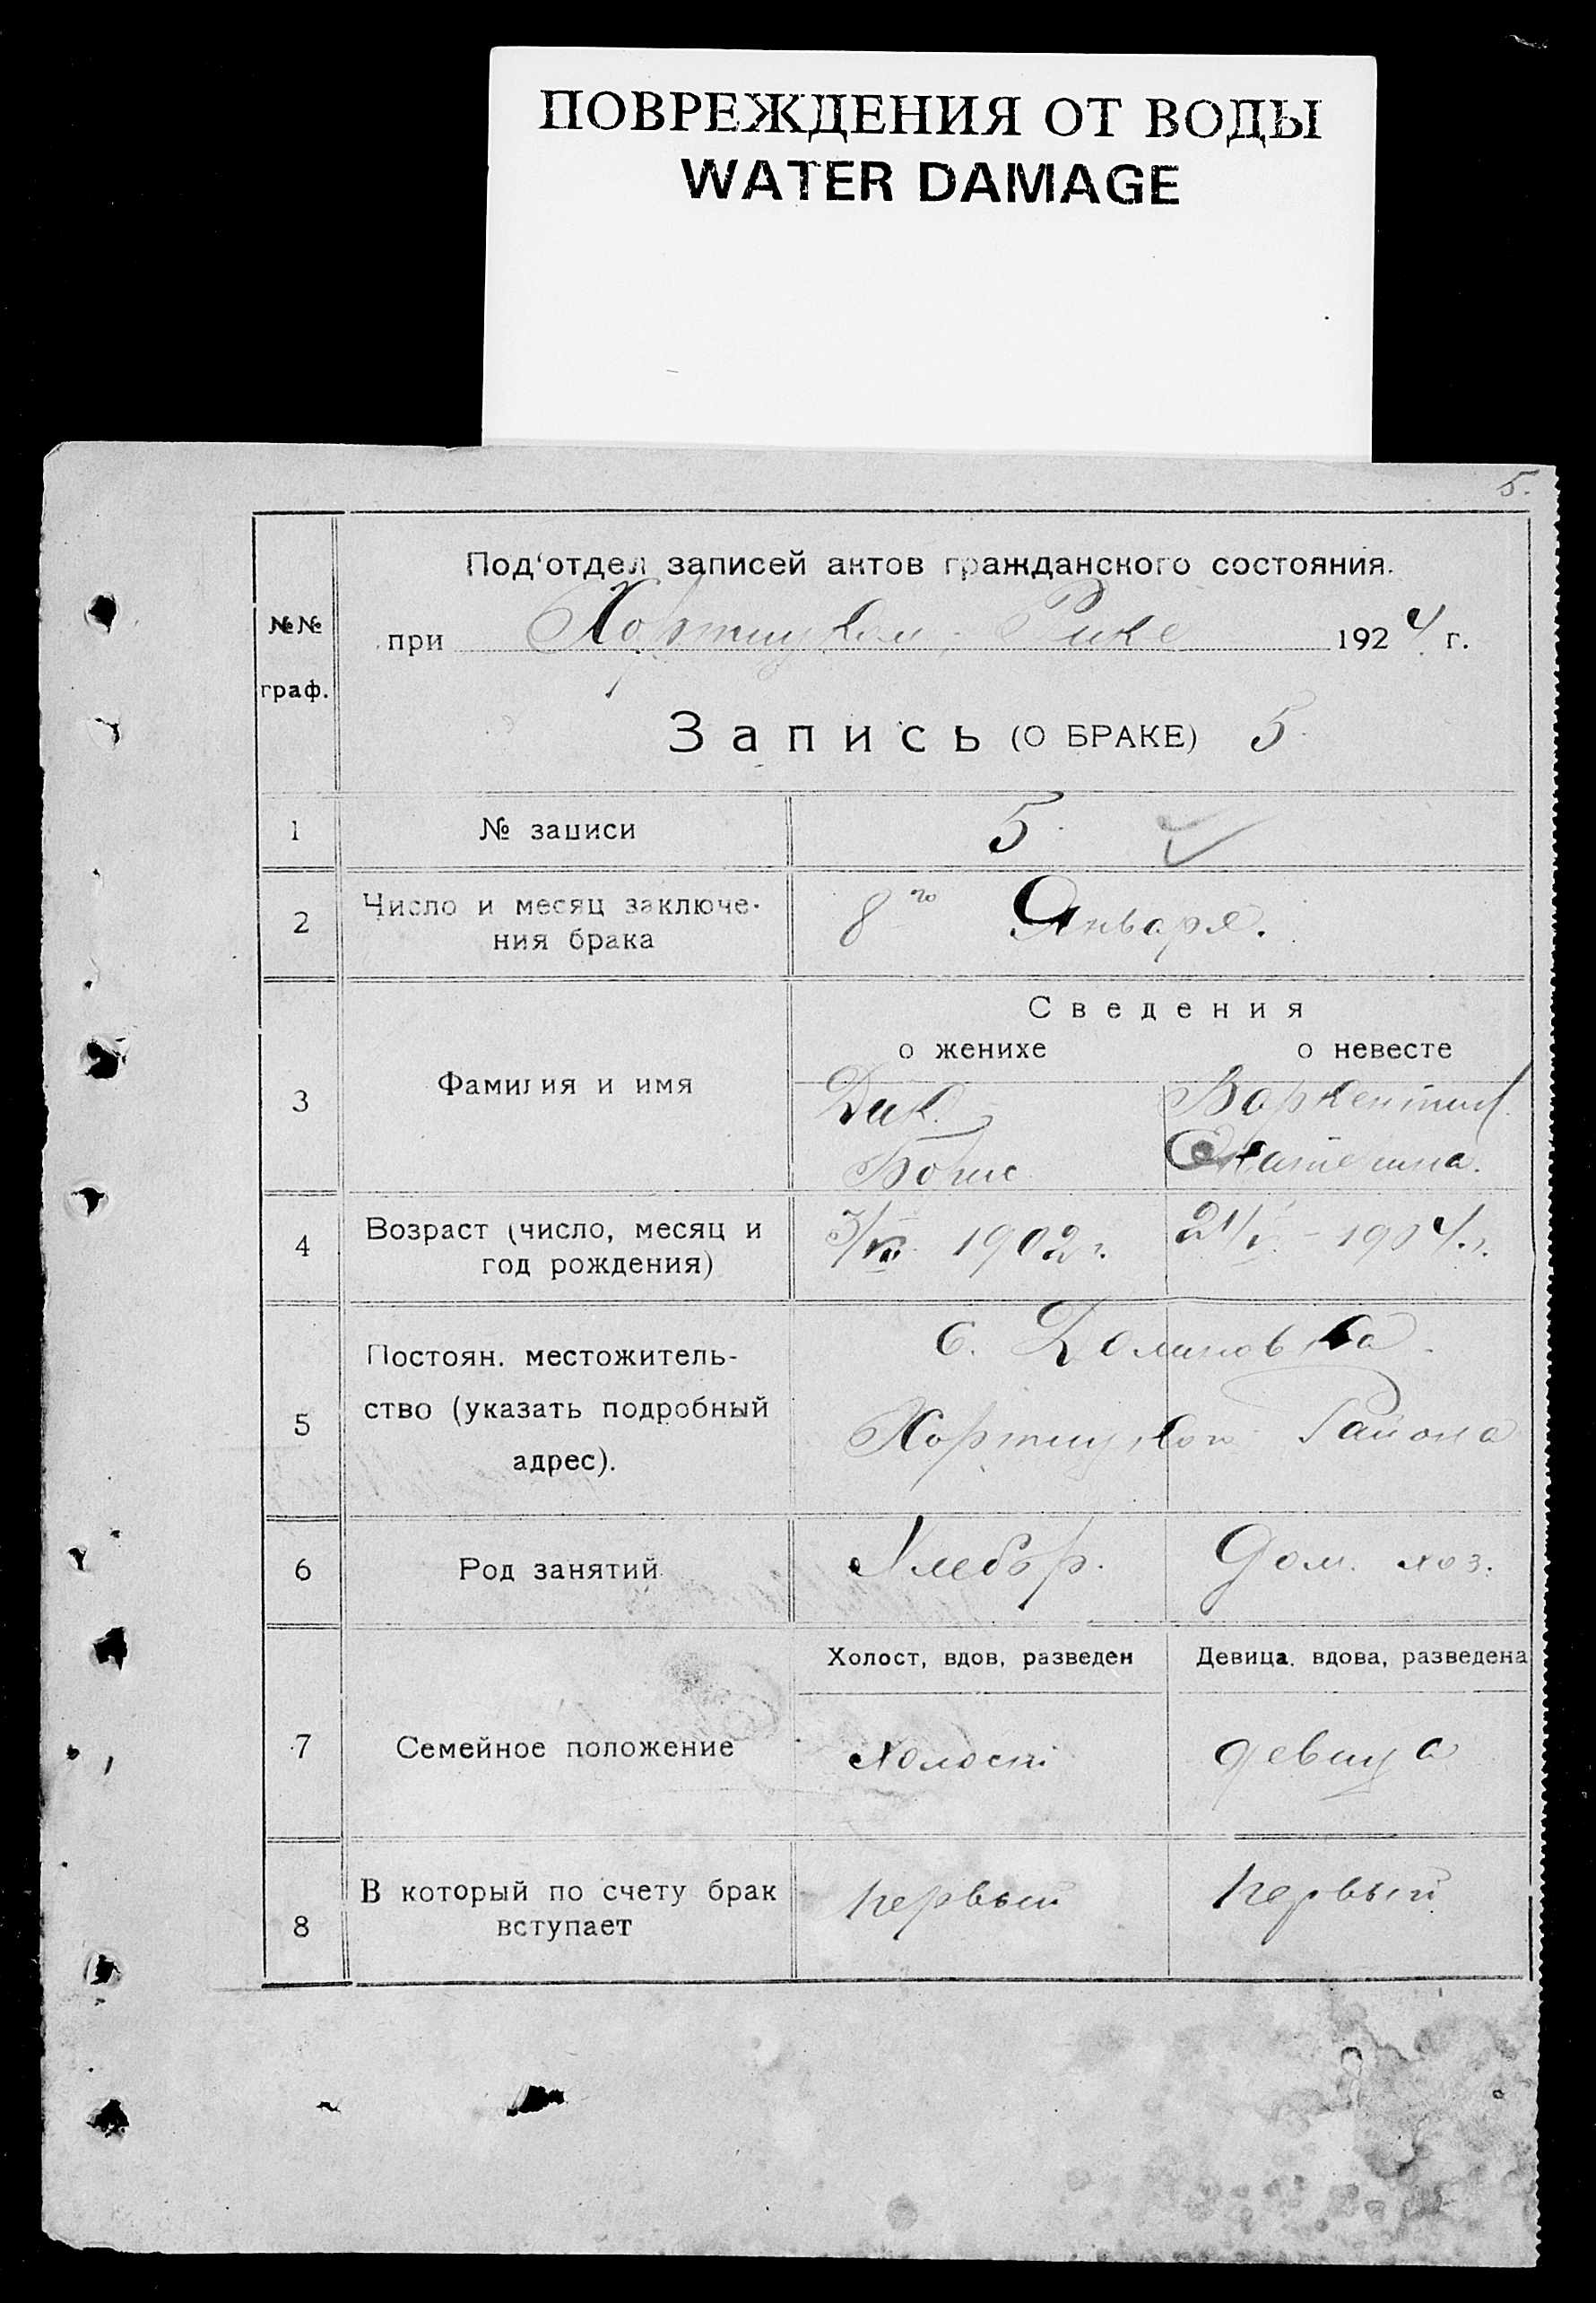 ПОВРЕЖДЕНИЯ ОТ ВОДЫ
WATER DAMAGE
5.
Под'отдел записей актов гражданского состояния.
№№ граф.
при Хортицком Рике 1924 г.
Запись (О БРАКЕ) 5
1 № записи 5
2 Число и месяц заключе-
ния брака
8го Января.
Сведения
о женихе о невесте
3 Фамилия и имя
Дик Варкентин
Катерина.
4 Возраст (число, месяц и
год рождения)
1902 г. 21/V - 1904 г.
5 Постоян. местожитель-
ство (указать подробный
адрес).
с.
Хортицкого Района
6 Род занятий Хлебор. Дом. хоз.
Холост, вдов, разведен Девица, вдова, разведена
7 Семейное положение холост девица
8 В который по счету брак
вступает
первый первый